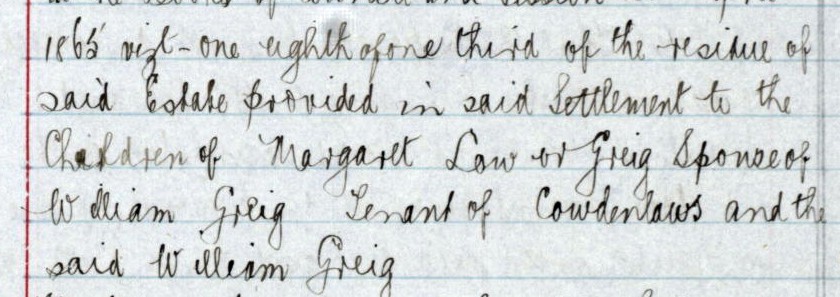 1865 vizt - one eighth of one third of the residue of
said Estate provided in said Settlement to the
Children of Margaret Law or Greig Spouse of
William Greig Tenant of Cowdenlaws and the
said William Greig